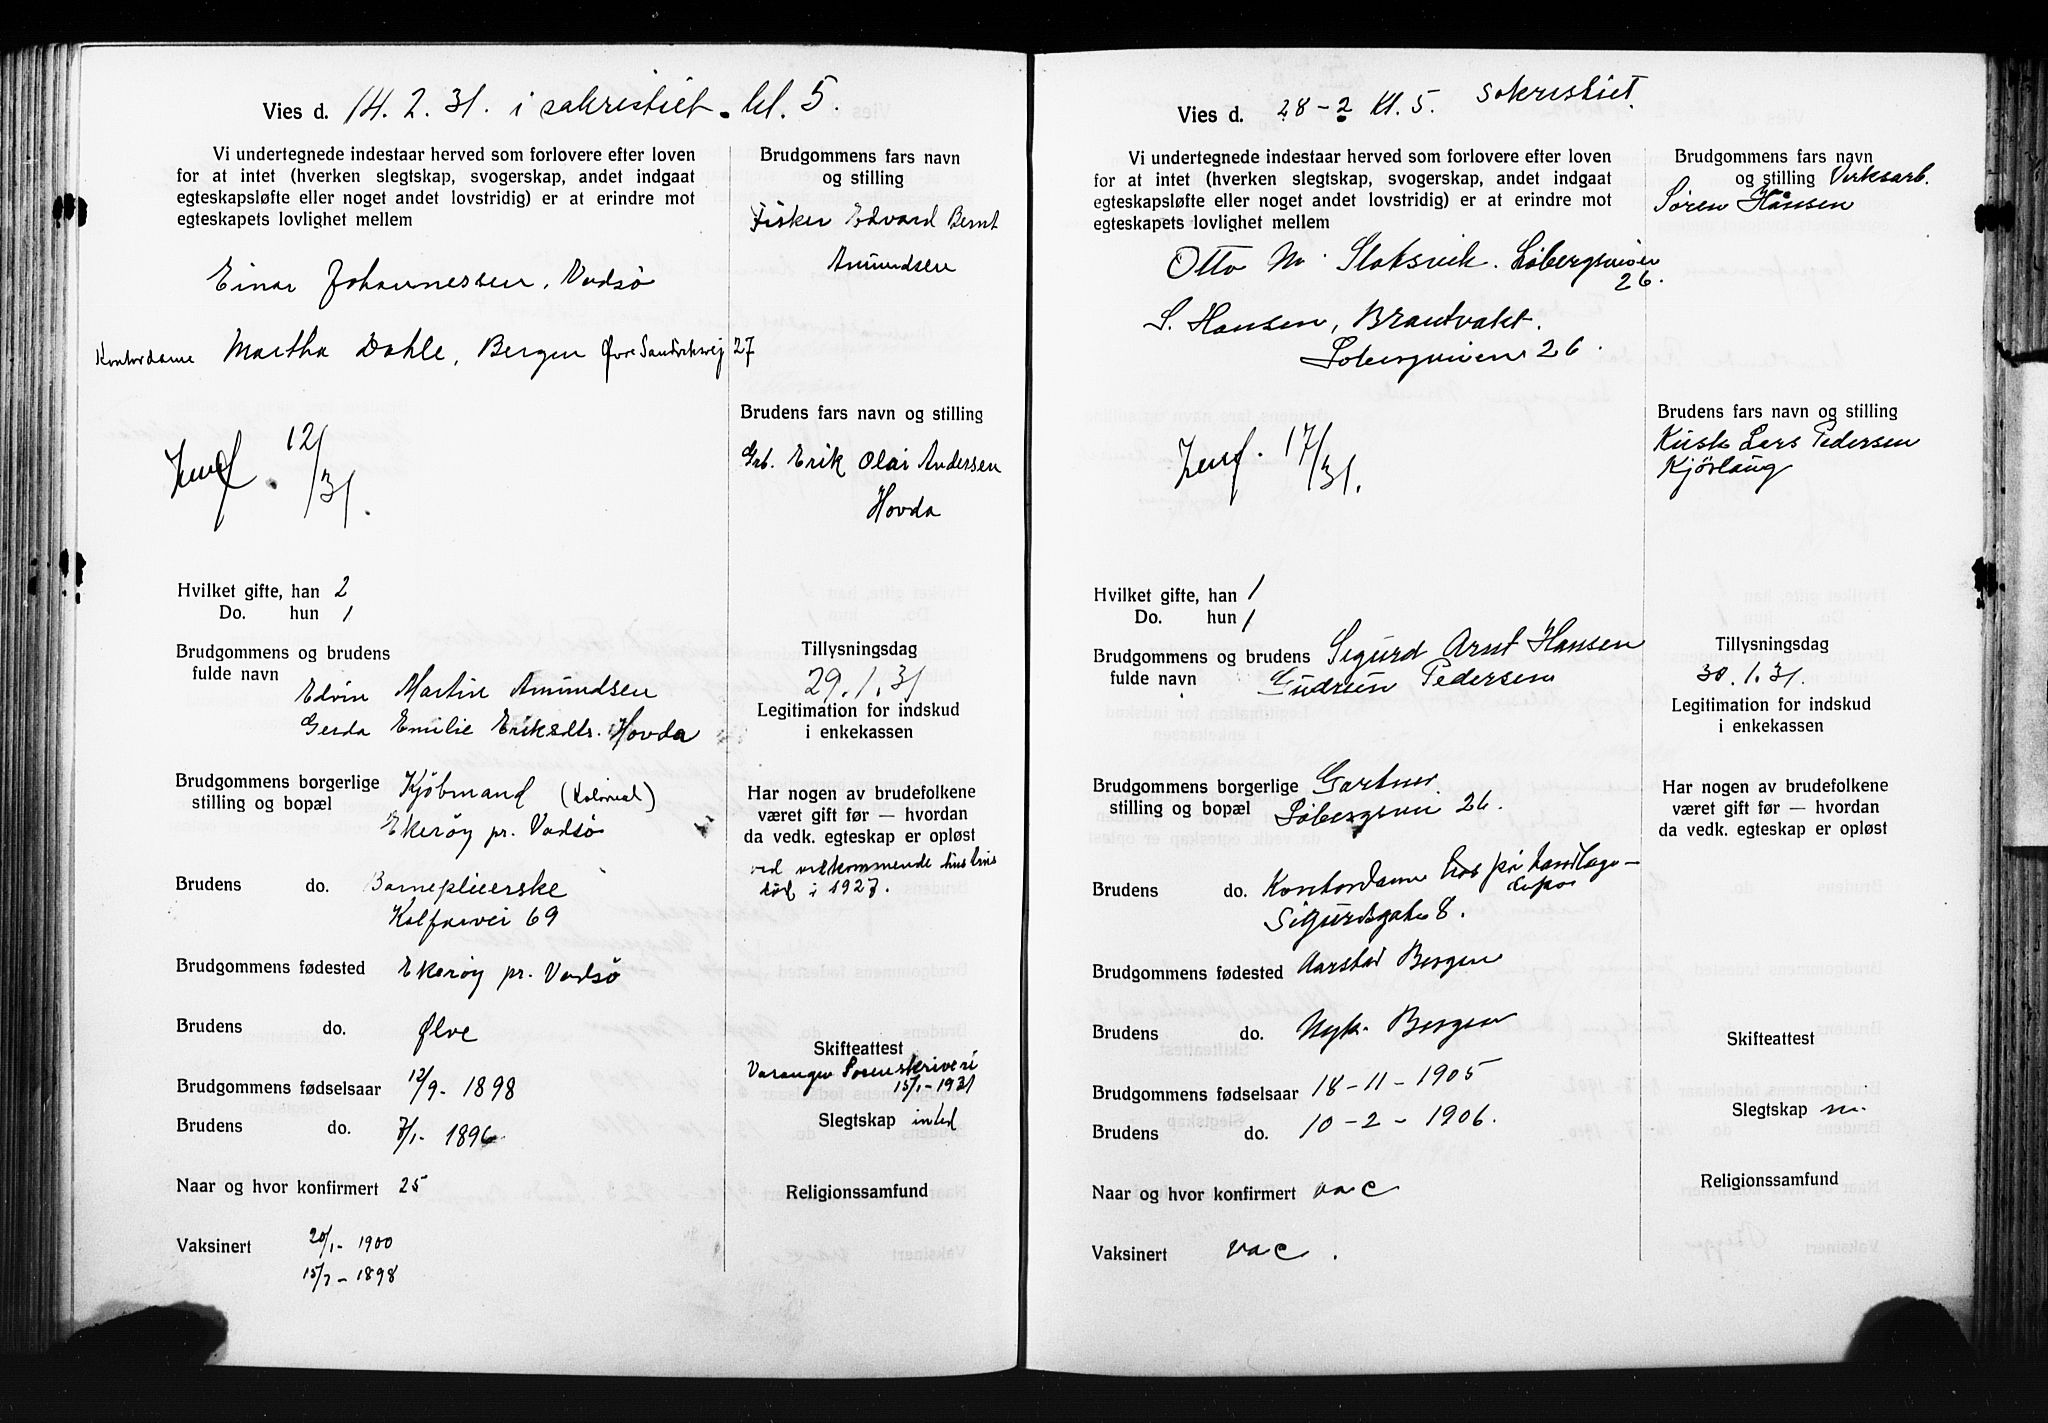 Vies d. 14.2.31. i sakristiet. kl. 5.
Vi undertegnede indestaar herved som forlovere efter loven
for at intet (hverken slegtskap, svogerskap, andet indgaat
egteskapsløfte eller noget andet lovstridig) er at erindre mot
egteskapets lovlighet mellem
Einar Johannessen, Vadsø
Kontordame Martha Dahle, Bergen Øvre Sandviksvej 27
12/
/31.
Hvilket gifte, han 2
Do. hun 1
Brudgommens og brudens
fulde navn
Edvin Martin Amundsen
Gerda Emilie Eriksdtr. Hovda
Brudgommens borgerlige Kjøbmand (Kolonial)
stilling og bopæl
Ekerøy pr. Vadsø
Brudens do. Barnepleierske
Kalfarvei 69
Brudgommens fødested Ekerøy pr. Vadsø
Brudens do. Ølve
Brudgommens fødselsaar 12/9- 1898
Brudens do. 7/1- 1896
Naar og hvor konfirmert 25
Vaksinert 20/1- 1900
15/7- 1898
Brudgommens fars navn
og stilling
Fisker Edvard Bernt
Amundsen
Brudens fars navn og stilling
Grb. Erik Olai Andersen
Hovda
Tillysningsdag
29.1.31
Legitimation for indskud
i enkekassen
Har nogen av brudefolkene
været gift før — hvordan
da vedk. egteskap er opløst
ved vedkommende hustrus
død i 1927.
Skifteattest
Varanger Sorenskriveri
15/1-1931
Slegtskap intet
Religionssamfund
Vies d. 28-2 Kl. 5. Sakristiet.
Vi undertegnede indestaar herved som forlovere efter loven
for at intet (hverken slegtskap, svogerskap, andet indgaat
egteskapsløfte eller noget andet lovstridig) er at erindre mot
egteskapets lovlighet mellem
Otto M. Sloksvik. Løbergsveien
26.
S. Hansen, Brandvakt.
Løbergsveien 26.
17/
/31.
Hvilket gifte, han 1
Do. hun 1
Brudgommens og brudens Sigurd Arnt Hansen
fulde navn Gudrun Pedersen
Brudgommens borgerlige Gartner
stilling og bopæl Løbergsvei 26.
Brudens do. Kontordame
Sigurdsgate 8.
Brudgommens fødested Aarstad Bergen
Brudens do. Nyk. Bergen
Brudgommens fødselsaar 18-11-1905
Brudens do. 10-2-1906.
Naar og hvor konfirmert vac
Vaksinert vac.
Brudgommens fars navn
og stilling Verksarb.
Søren Hansen
Brudens fars navn og stilling
Kusk Lars Pedersen
Kjøslaug
Tillysningsdag
30.1.31.
Legitimation for indskud
i enkekassen
Har nogen av brudefolkene
været gift før — hvordan
da vedk. egteskap er opløst
Skifteattest
Slegtskap
Religionssamfund